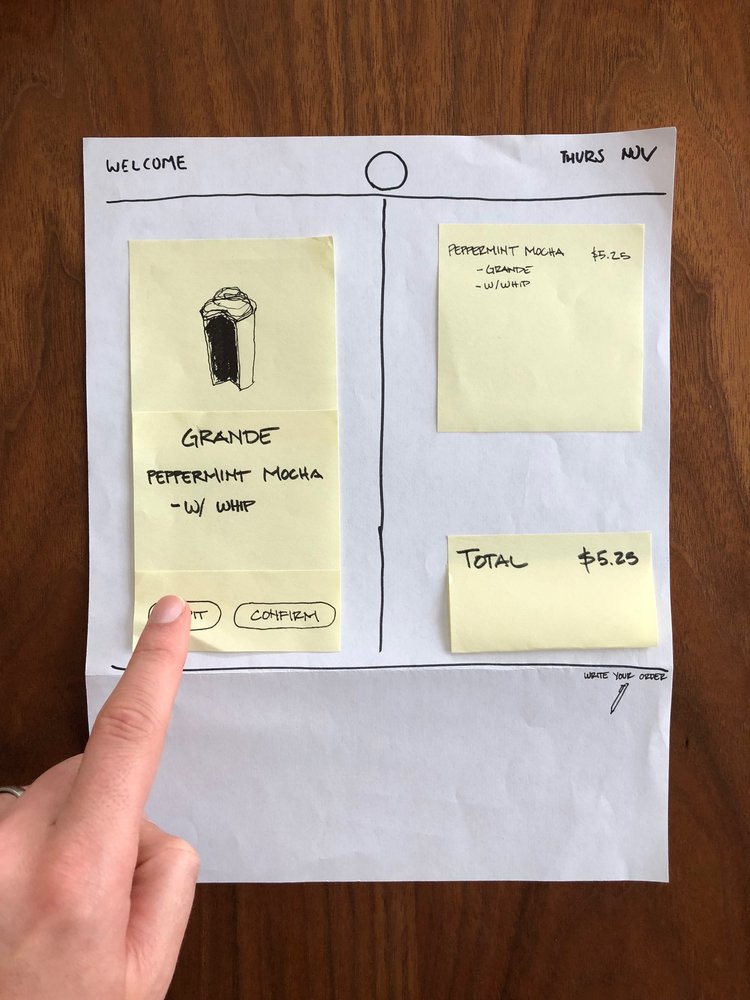 WELCOME
THURS NOV
GRANDE
PEPPERMINT MOCHA
- W/ WHIP
CONFIRM
PEPPERMINT MOCHA $5.25
- GRANDE
- W/WHIP
TOTAL $5.25
WRITE YOUR ORDER